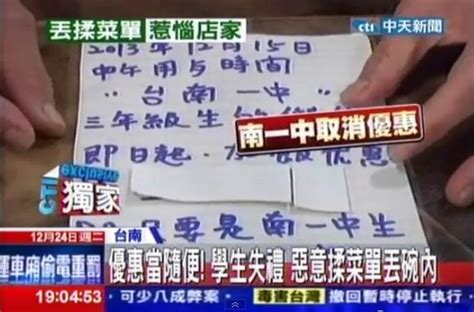 丟揉菜單 惹惱店家
cti 中天新聞
2013年12月15日
中午用与時間
"台南一中"
三年級生
南一中取消優惠
即日起
CTi exclusive
獨家
要是南一中生
12月24日 週二
台南
運車廂偷電重罰
優惠當隨便! 學生失禮 惡意揉菜單丟碗內
19:04:53
可少八成弊案
毒害台灣
撤回暫時停止執行